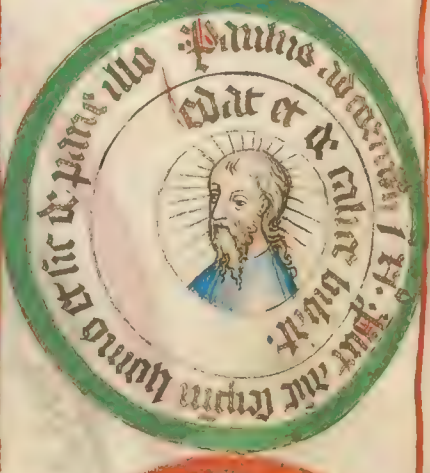 Paulus ad corinth i xiº. Probet autem seipsum homo et sic de pane illo
edat et de calice bibat.